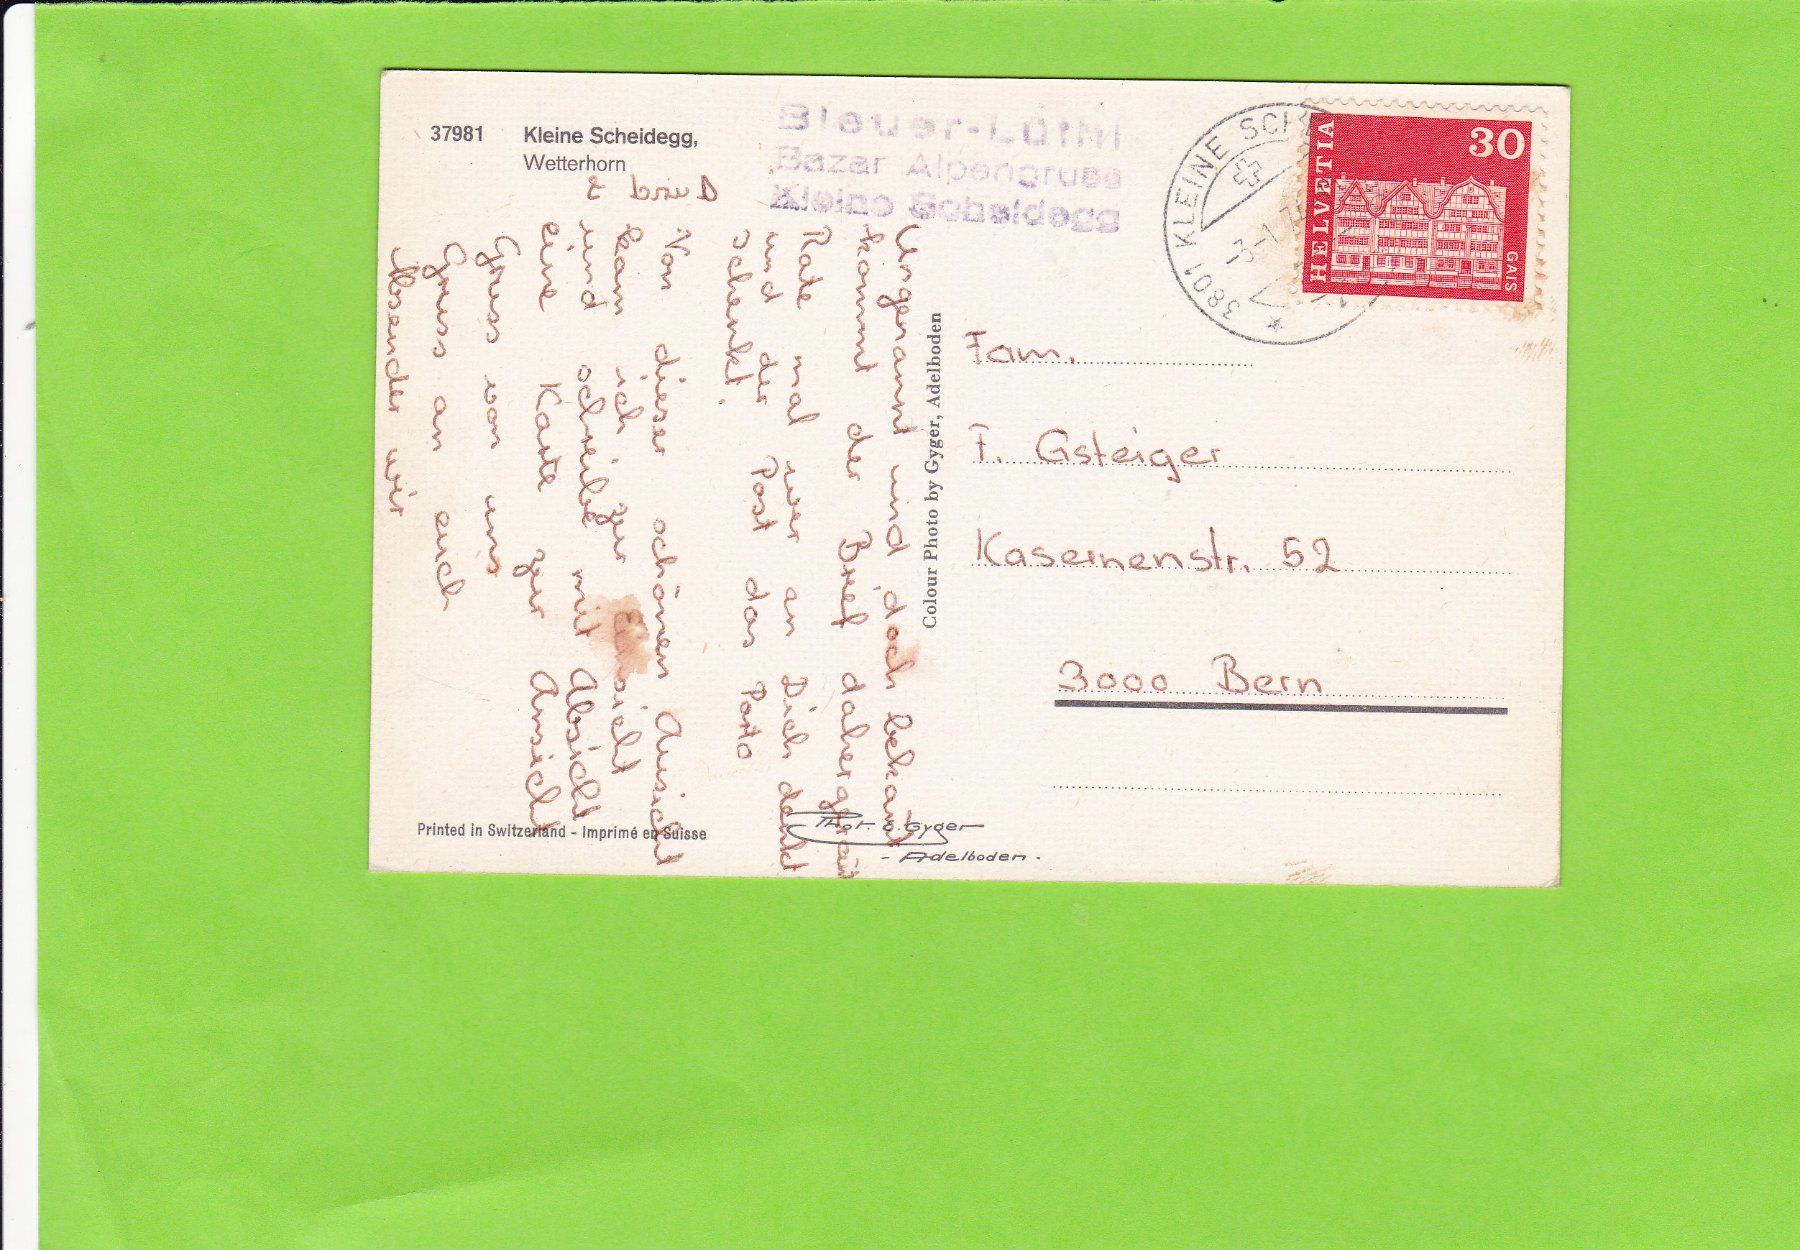 37981 Kleine Scheidegg,
Wetterhorn
Bleuer-Lüthi
Bazar Alpengruss
Kleine Scheidegg
3801 KLEINE SCHE
HELVETIA
30
GAIS
Ungenannt und doch bekannt
kommt der Brief daher
Rate mal wer an Dich denkt
und der Post das Porto
schenkt.
Von dieser schönen Aussicht
kam ich zur Einsicht
und schreibe mit Absicht
eine Karte zur Ansicht
Gruss von uns
Gruss an euch
Absender wir
Colour Photo by Gyger, Adelboden
Fam.
F. Gsteiger
Kasernenstr. 52
3000 Bern
Printed in Switzerland - Imprimé en Suisse
Phot. E. Gyger
- Adelboden -